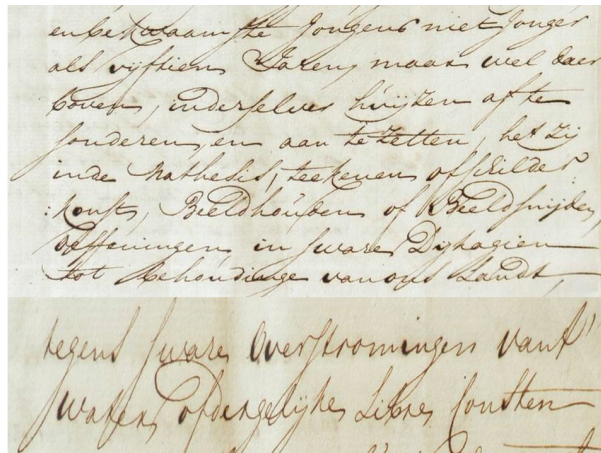 en bekwaamste Jongens niet Jonger
als vijftien Jaren, maar wel daer
boven, inderselver huijsen af te
sonderen, en aan te zetten, het zij
inde Mathesis, teekenen of schilder
:konst, Beeldhouwen of Beeldsnijden,
oeffeningen in sware Dijkagien
tot behoudinge van ons Landt,
tegens sware overstromingen vant
water, of diergelijke Libre Consten